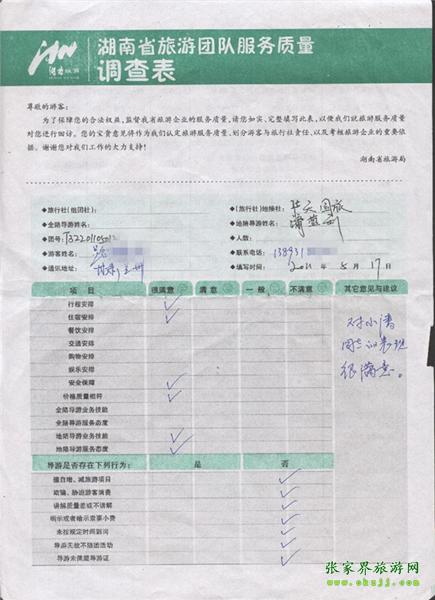 湖南旅游
湖南省旅游团队服务质量
调查表
尊敬的游客:
为了保障您的合法权益,监督我省旅游企业的服务质量,请您如实、完整填写此表,以便我们就旅游服务质量
对您进行回访。您的宝贵意见将作为我们认定旅游服务质量、划分游客与旅行社责任,以及考核旅游企业的重要依
据。谢谢您对我们工作的大力支持!
湖南省旅游局
◆旅行社(组团社): ◆(旅行社)地接社:
◆全陪导游姓名: ◆地陪导游姓名:
◆团号: ◆人数:
◆游客姓名: ◆联系电话: 138931
◆通讯地址: ◆填写时间: 2011 年 5 月 17 日
项 目 很满意 满 意 一 般 不满意 其它意见与建议
行程安排
住宿安排
餐饮安排
交通安排
购物安排
娱乐安排
安全保障
价格质量相符
全陪导游业务技能
全陪导游服务态度
地陪导游业务技能
地陪导游服务态度
对小清
很满意。
导游是否存在下列行为: 是 否
擅自增、减旅游项目
欺骗、胁迫游客消费
讲解质量差或不讲解
明示或者暗示索要小费
未按规定时间到岗
导游无故不随团活动
导游未佩戴导游证
张家界旅游网
www.okzjj.com